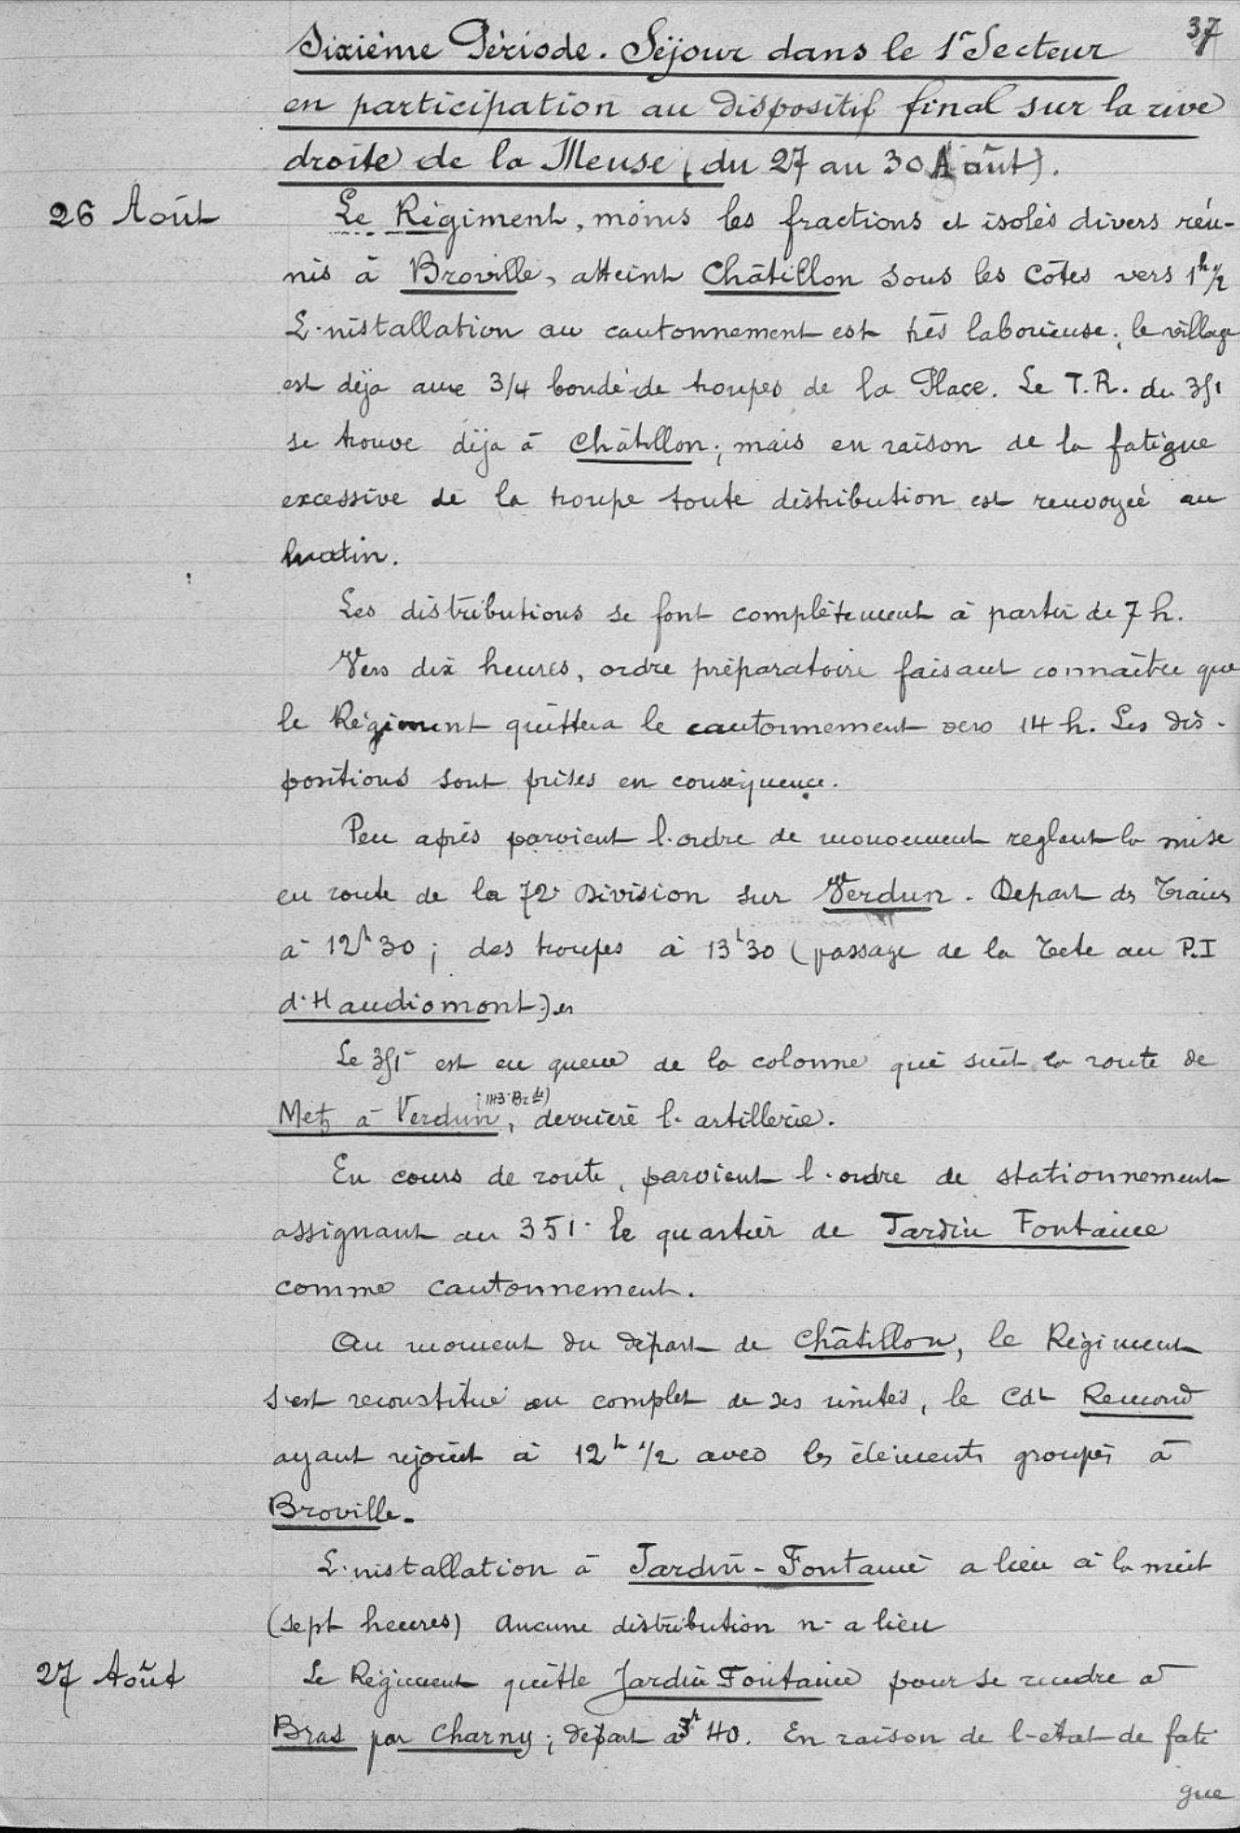 37
Sixième Période. Séjour dans le 1r Secteur
en participation au dispositif final sur la rive
droite de la Meuse (du 27 au 30 Août).
26 Août
Le Régiment, moins les fractions et isolés divers réu-
nis à Broville, atteint Châtillon sous les Côtes vers 1h 1/2
L'installation au cantonnement est très laborieuse; le village
est déja aux 3/4 bondé de troupes de la Place. Le T.R. du 351
se trouve déja à Châtillon; mais en raison de la fatigue
excessive de la troupe toute distribution est renvoyée au
matin.
Les distributions se font complètement à partir de 7 h.
Vers dix heures, ordre préparatoire faisant connaître que
le Régiment quittera le cantonnement vers 14 h. Les dis-
positions sont prises en conséquence.
Peu après parvient l'ordre de mouvement reglant la mise
en route de la 72e Division sur Verdun. Depart des Trains
à 12h30; des troupes à 13h30 (passage de la Tete au P.I
d'Haudiomont)
Le 351e est en queue de la colonne qui suit la route de
Metz à Verdun, derrière l'artillerie.
En cours de route, parvient l'ordre de stationnement
assignant au 351e le quartier de Jardin Fontaine
comme cantonnement.
Au moment du départ de Châtillon, le Régiment
s'est reconstitué au complet de ses unités, le Cdt Remond
ayant rejoint à 12h 1/2 avec les éléments groupés à
Broville.
L'installation à Jardin-Fontaine a lieu à la nuit
(sept heures) Aucune distribution n'a lieu
27 Août
Le Régiment quitte Jardin Fontaine pour se rendre à
Bras par Charny; départ à h 40. En raison de l'etat de fati
gue